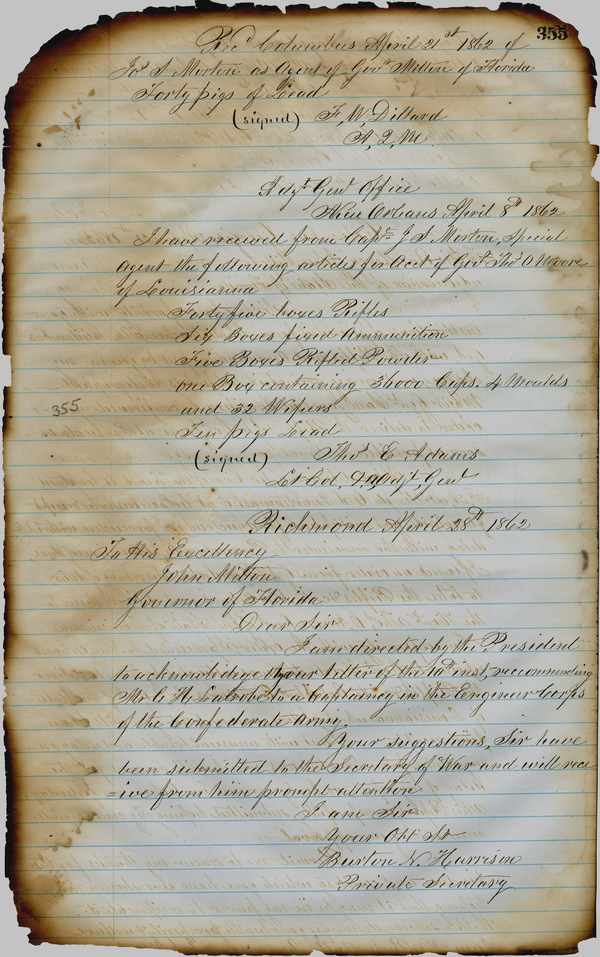 355
Rec^d Columbus April 21^st 1862 of
Jos S Morton as Agent of Gov^r Milton of Florida
Forty pigs of Lead
(signed) F, W, Dillard
A, Q. M.
Adj^t Gen^l Office
New Orleans April 8^th 1862
I have received from Cap^t J S Morton, Special
Agent the following articles for Acc^t of Gov^r Tho^s O Moore
of Louisianna
Forty five boxes Rifles
Six Boxes fixed Ammunition
Five Boxes Rifled Powder
one Box containing 36000 Caps. 4 Moulds
355
and 32 Wipers
Ten pigs Lead
(signed) Tho^s E Adams
Lt Col, & Adj^t, Gen^l
Richmond April 28^th 1862
To His Excellency
John Milton
Governor of Florida
Dear Sir
I am directed by the President
to acknowledge your letter of the 10^th inst, recommending
Mr C. H. Latrobe to a Captaincy in the Engineer Corps
of the Confederate Army.
Your suggestions, Sir have
been submitted to the Secretary of War and will rece
=ive from him prompt attention
I am Sir
Your Obt St
Burton N. Harrison
Private Secretary